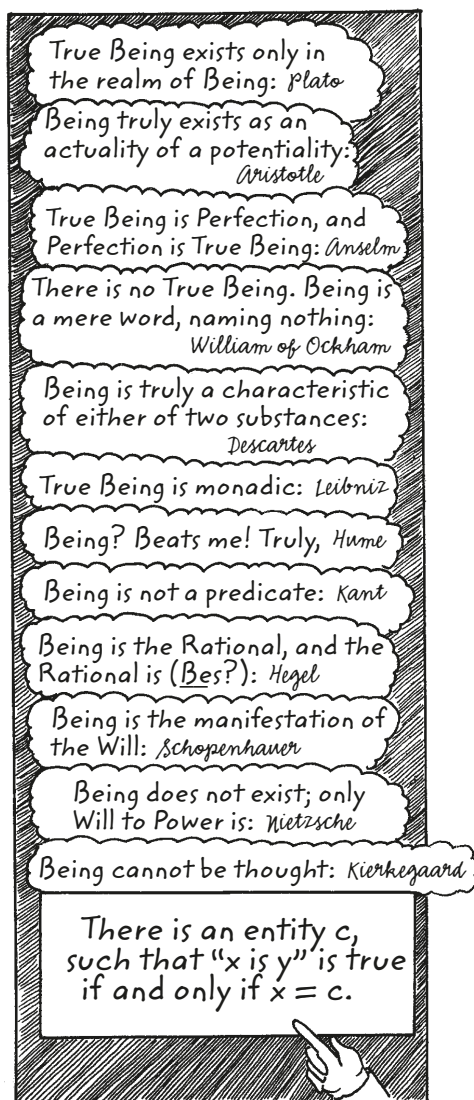 True Being exists only in
the realm of Being: Plato
Being truly exists as an
actuality of a potentiality:
Aristotle
True Being is Perfection, and
Perfection is True Being: Anselm
There is no True Being. Being is
a mere word, naming nothing:
William of Ockham
Being is truly a characteristic
of either of two substances:
Descartes
True Being is monadic: Leibniz
Being? Beats me! Truly, Hume
Being is not a predicate: Kant
Being is the Rational, and the
Rational is (Bes?): Hegel
Being is the manifestation of
the Will: Schopenhauer
Being does not exist; only
Will to Power is: Nietzsche
Being cannot be thought: Kierkegaard
There is an entity c,
such that “x is y” is true
if and only if x = c.